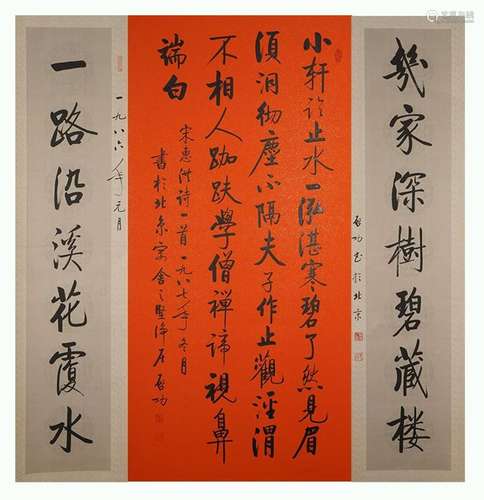 幾家深樹碧藏楼
啟功書於北京
小轩临止水一泓湛寒碧了然見眉
須洞彻塵不隔夫子作止觀涇渭
不相人跏趺學僧禪諦視鼻
端白
宋惠洪诗一首一九八七年冬月
書於北京寓舍之堅净居启功
一路沿溪花覆水
一九八六年元月